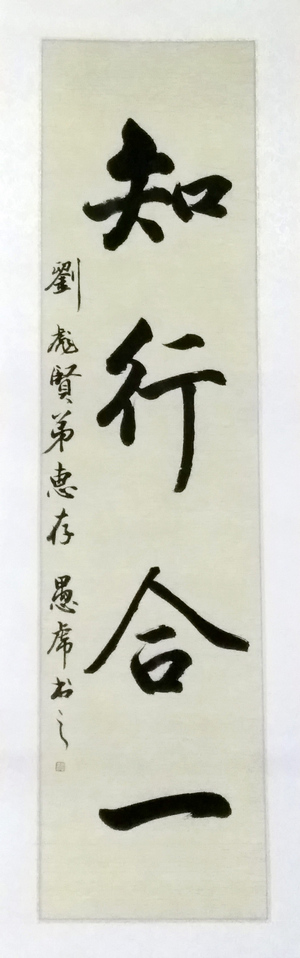 知行合一
劉彪賢弟惠存 愚席书之